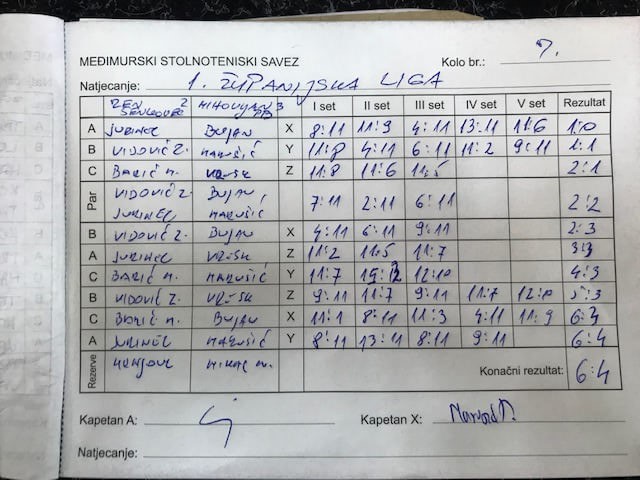 MEĐIMURSKI STOLNOTENISKI SAVEZ Kolo br.: 7.
Natjecanje: 1. ŽUPANIJSKA LIGA
2 MIHOVLJAN 3 I set II set III set IV set V set Rezultat
A JURINEC BUJAN X 8:11 11:9 4:11 13:11 11:6 1:0
B VIDOVIĆ Z. MARUŠIĆ Y 11:8 4:11 6:11 11:2 9:11 1:1
C BARIĆ M. Z 11:8 11:6 11:5 2:1
Par VIDOVIĆ Z. BUJAN 7:11 2:11 6:11 2:2
JURINEC MARUŠIĆ
B VIDOVIĆ Z. BUJAN X 4:11 6:11 9:11 2:3
A JURINEC Z 11:2 11:5 11:7 3:3
C BARIĆ M. MARUŠIĆ Y 11:7 12:10 4:3
B VIDOVIĆ Z. Z 9:11 11:7 9:11 11:7 12:10 5:3
C BARIĆ M. BUJAN X 11:1 8:11 11:3 4:11 11:9 6:4
A JURINEC MARUŠIĆ Y 8:11 13:11 8:11 9:11 6:4
Rezerve Konačni rezultat: 6:4
Kapetan A: Kapetan X:
Natjecanje: